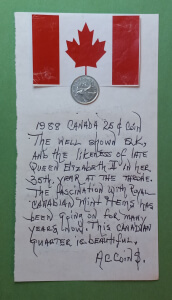 1988 CANADA 25¢ Coin
THE WELL KNOWN ELK,
AND THE LIKENESS OF LATE
QUEEN ELIZABETH II IN HER
35th, YEAR AT THE THRONE.
THE FASCINATION WITH ROYAL
CANADIAN MINT ITEMS HAS
BEEN GOING ON FOR MANY
YEARS NOW. THIS CANADIAN
QUARTER IS BEAUTIFUL.